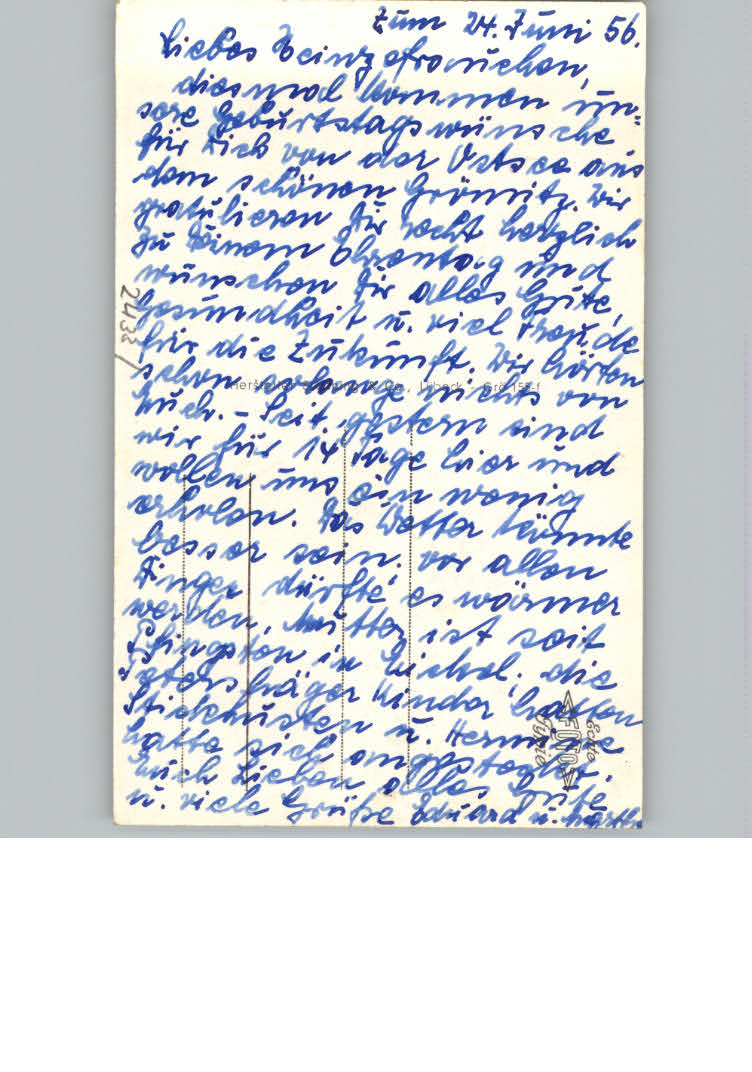 Zum 24. Juni 56.
Liebes Heinzefrauchen,
diesmal kommen un-
sere Geburtstagswünsche
für Dich von der Ostsee aus
dem schönen Grömitz. Wir
gratulieren Dir recht herzlich
zu Deinem Ehrentag und
wünschen Dir alles Gute,
Gesundheit u. viel Freude
für die Zukunft. Wir hörten
schon solange nichts von
Euch. - Seit gestern sind
wir für 14 Tage hier und
wollen uns ein wenig
erholen. Das Wetter könnte
besser sein. Vor allen
Dingen dürfte es wärmer
werden. Mutter ist seit
Pfingsten in Eickel. die
Petershäger Kinder hatten
Stickhusten u. Hermine
hatte sich angesteckt.
Euch Lieben alles Gute
u. viele Grüße Eduard u. Martha
2433
Hersteller: & Co., Lübeck - Grö 155-f
Echte
FOTO